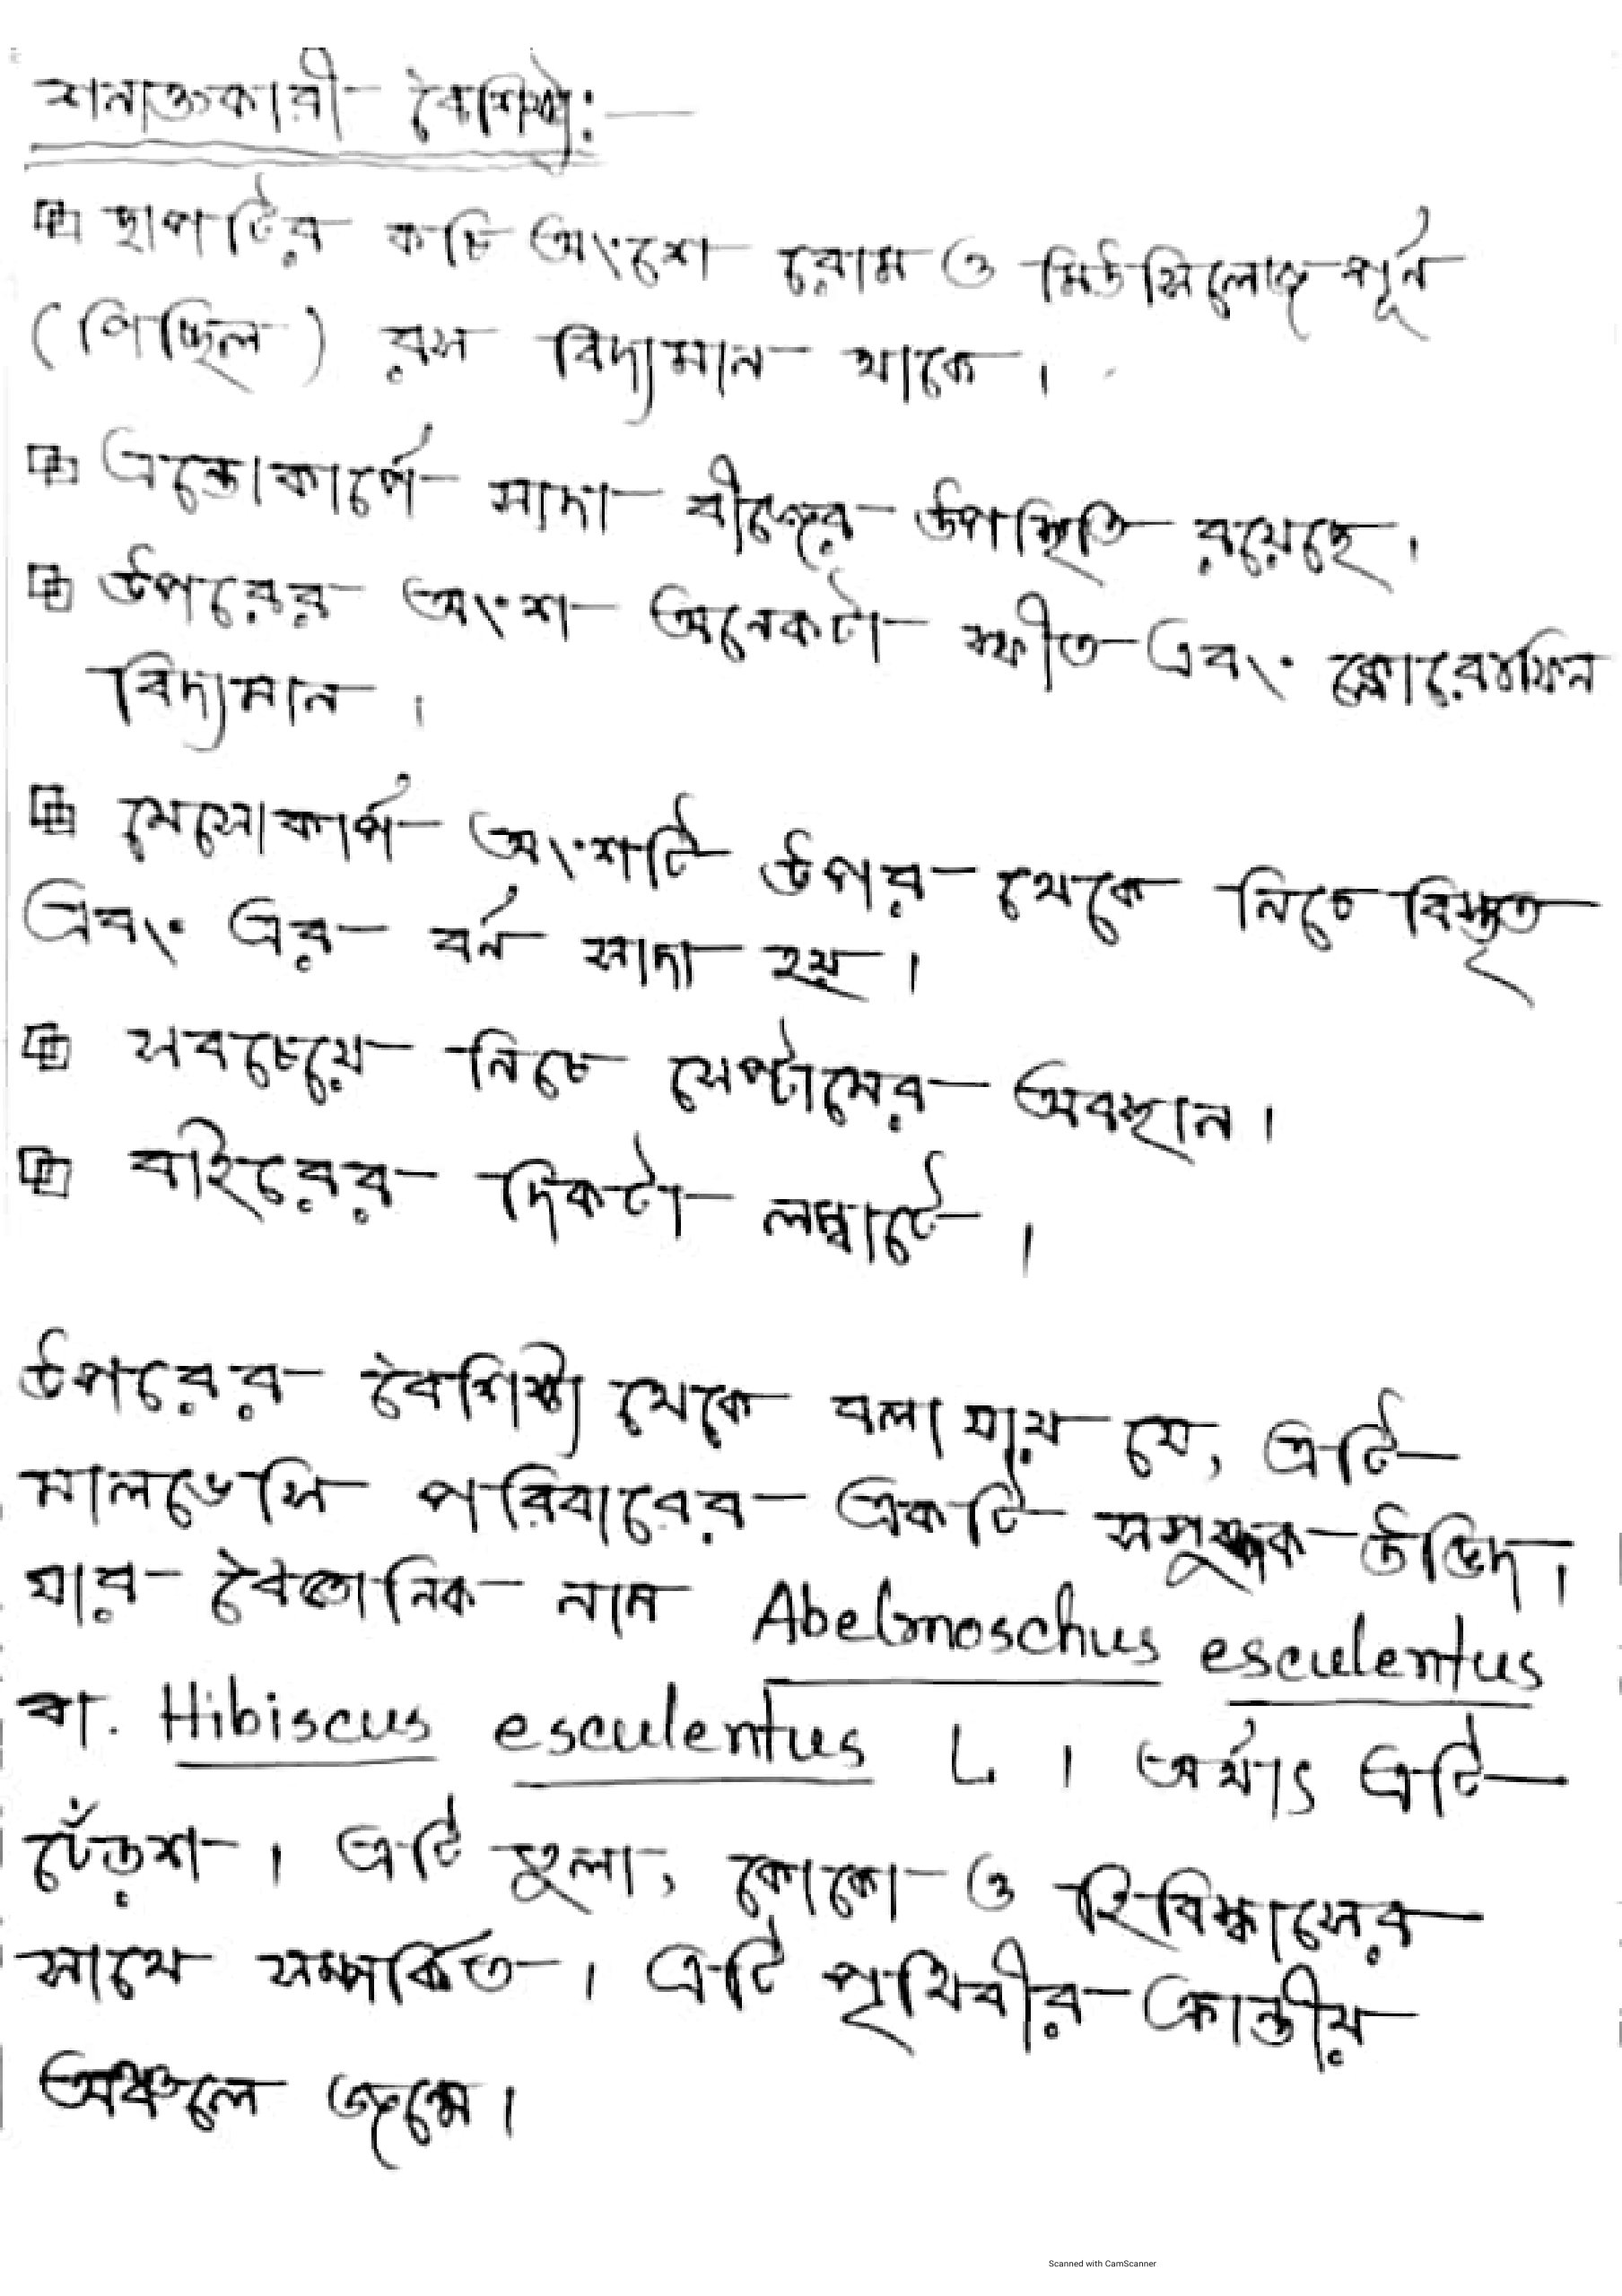 শনাক্তকারী বৈশিষ্ট্য:—
কচি অংশে রোম ও মিউসিলেজ পূর্ন
(পিচ্ছিল) রস বিদ্যমান থাকে।
এন্ডোকার্পে সাদা বীজের উপস্থিতি রয়েছে।
উপরের অংশ অনেকটা স্ফীত এবং
বিদ্যমান।
মেসোকার্প অংশটি উপর থেকে নিচে বিস্তৃত
এবং এর বর্ন সাদা হয়।
সবচেয়ে নিচে সেপ্টামের অবস্থান।
বাইরের দিকটা লম্বাটে।
উপরের বৈশিষ্ট্য থেকে বলা যায় যে, এটি
মালভেসি পরিবারের একটি সপুষ্পক উদ্ভিদ।
যার বৈজ্ঞানিক নাম Abelmoschus esculentus
বা. Hibiscus esculentus L. । অর্থাৎ এটি
ঢেঁড়শ। এটি তুলা, কোকো ও হিবিস্কাসের
সাথে সম্পর্কিত। এটি পৃথিবীর ক্রান্তীয়
অঞ্চলে জন্মে।
Scanned with CamScanner